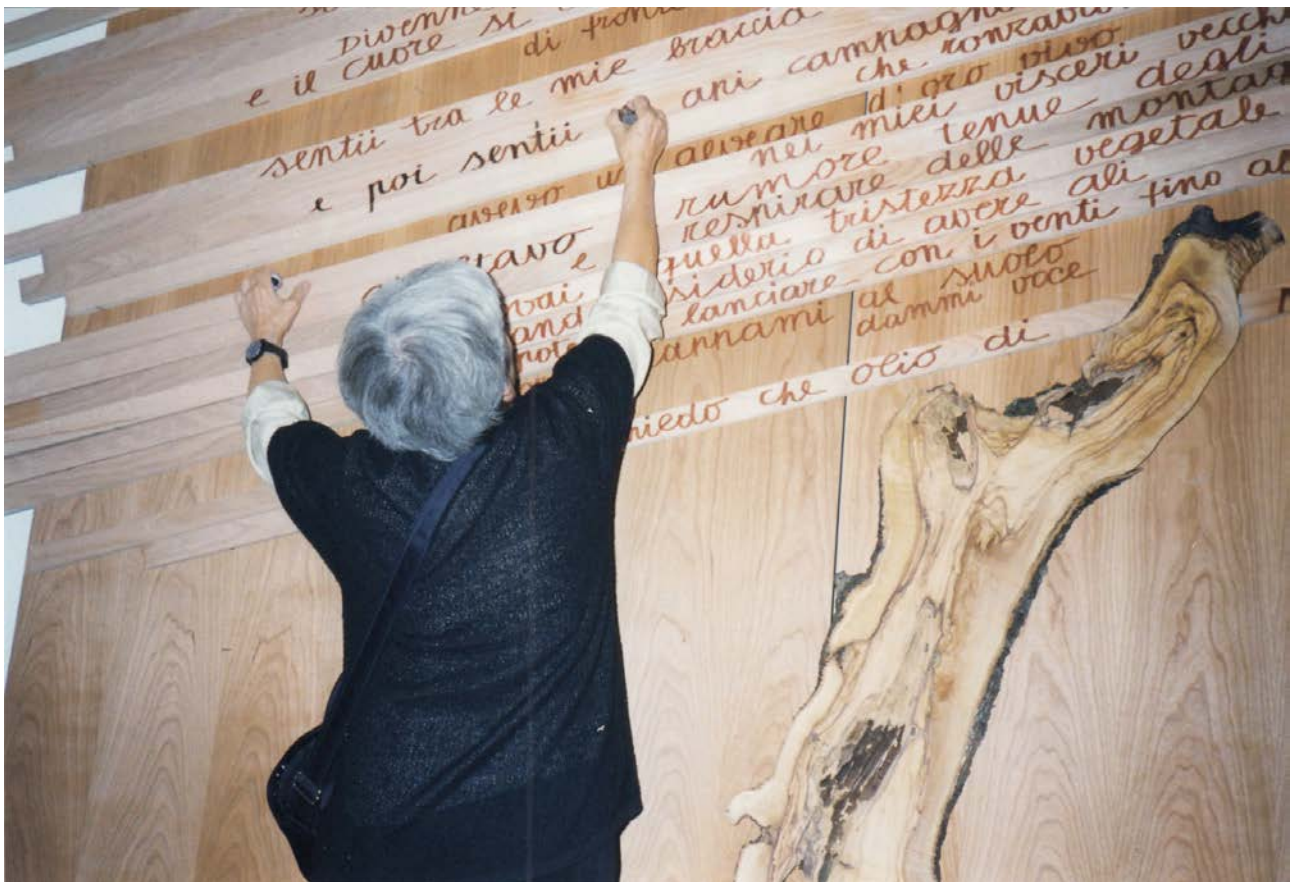 Divenn
e il cuore si
di fron
sentii tra le mie braccia
e poi sentii api campagno
che ronzavo
avevo alveare d'oro vivo
nei miei visceri vecchi
rumore tenue degli
respirare delle montag
e quella tristezza vegetale
siderio di avere ali
lanciare con i venti fino al
annami al suolo
dammi voce
iedo che olio di